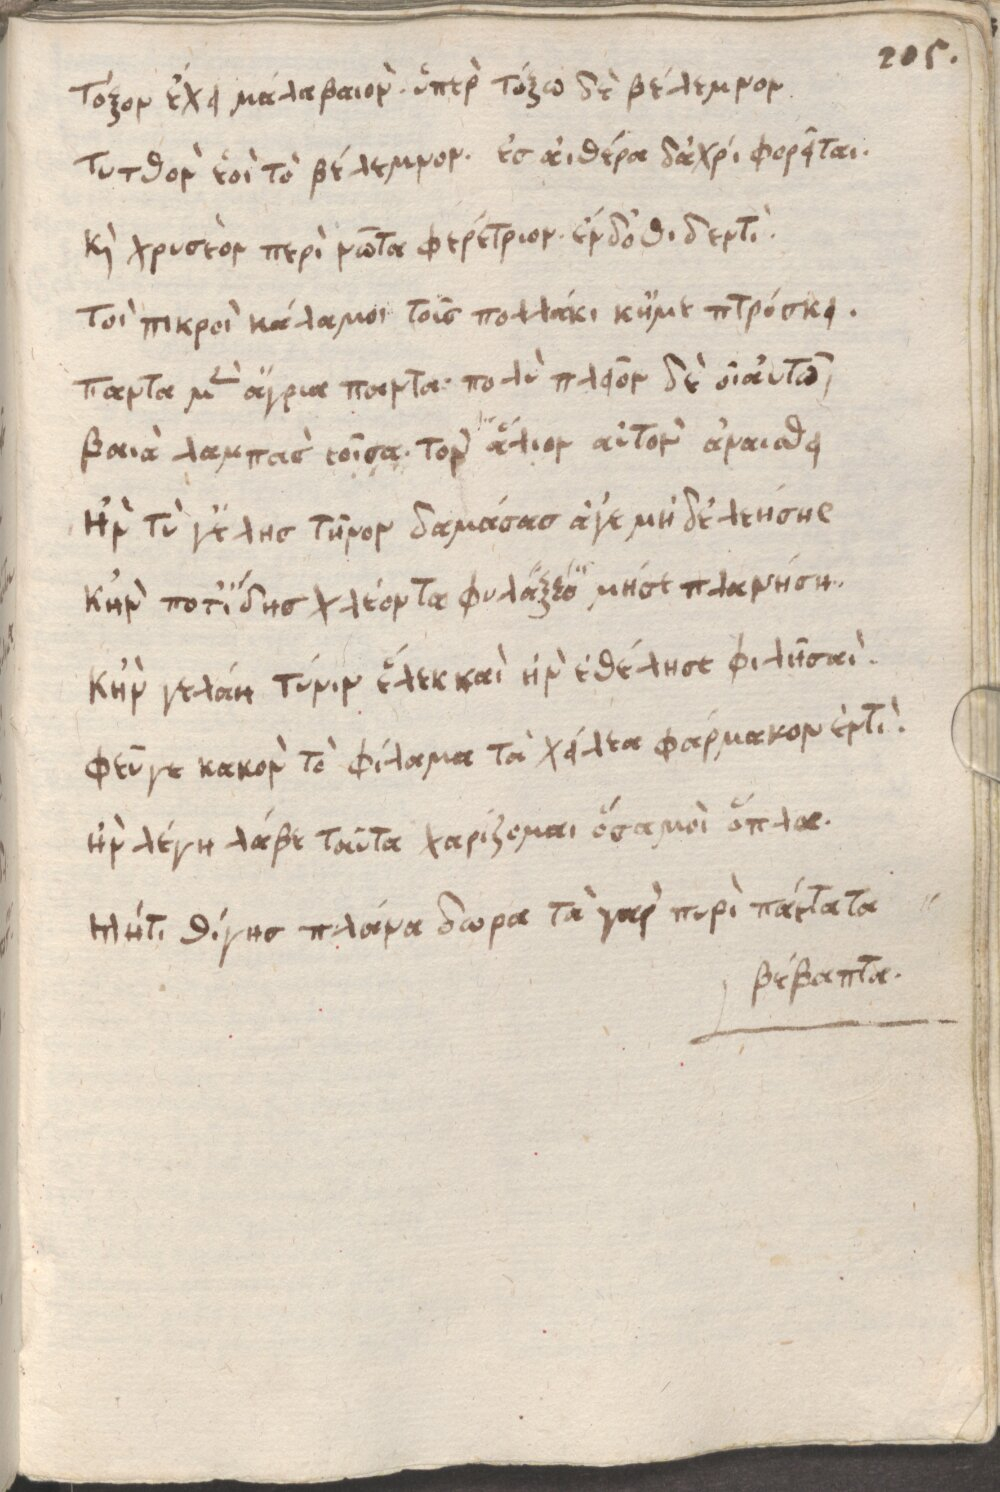 205.
τόξον ἔχει μάλα βαιὸν· ὕπὲρ τόξω δὲ βέλεμνον
τυτθὸν ἑοῖ τὸ βέλεμνον· ἐσ ἀιθέρα δἀχρί φορεῖται.
κὴ χρυσέον περὶ νῶτα φερέτριον. ἔνδοθι δεντὶ.
τοὶ πικροὶ κάλαμοι τοῖσ πολλάκι κἤμε πτρόσκει.
παντα μὲν ἄγρια παντα· πολὺ πλεῖον δὲ οἷἀυτῶ
βαιὰ λαμπασ ἐοῖσα. τον ἅλιον αὐτὸν ἀναιθει
ἢν τὺ γἕλησ τῆνον δαμάσασ ἄγε μὴ δἐλεήσησ
κἢν ποτἴδησ κλέοντα φυλάξεο μήσε πλανήση.
κἢν γελάη τύνιν ἕλεκ καὶ ἢν ἐθέλησε φιλῆσαὶ.
φεῦγε κακὸν τὸ φίλαμα τὰ χείλεα φάρμακον ἐντὶ.
ἢν λέγη λάβε ταῦτα χαρίζομαι ὅσαμοὶ ὅπλα.
μήτι θίγησ πλάνα δωρα τὰ γαρ πυρὶ πάντατα
βέβαπτα.